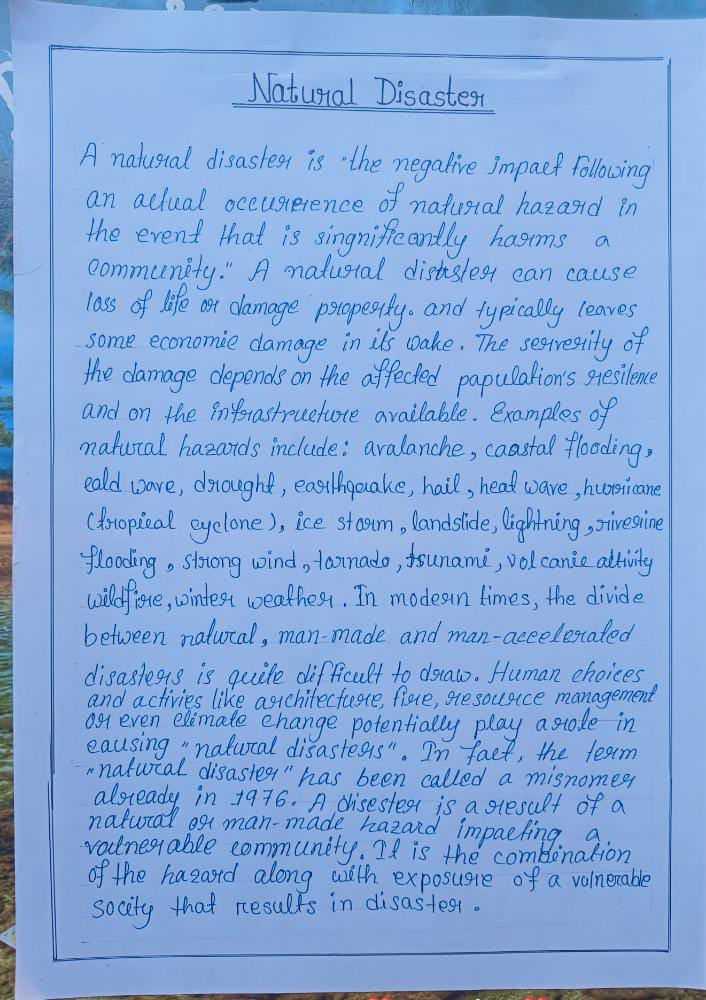 Natural Disaster
A natural disaster is "the negative impact following
an actual occurerence of natural hazard in
the event that is singnificantly harms a
community." A natural disaster can cause
loss of life or damage property. and typically leaves
some economic damage in its wake. The serverity of
the damage depends on the affected papulation's resilence
and on the infrastructure available. Examples of
natural hazards include: avalanche, coastal flooding,
cald wave, drought, earthquake, hail, heat wave, hurricane
(tropical cyclone), ice storm, landslide, lightning, riverine
flooding, strong wind, tornado, tsunami, volcanic attivity
wildfire, winter weather. In modern times, the divide
between natural, man-made and man-accelerated
disasters is quite difficult to draw. Human choices
and activies like architecture, fire, resource management
or even climate change potentially play a role in
causing "natural disasters". In fact, the term
"natural disaster" has been called a misnomer
already in 1976. A disester is a result of a
natural or man-made hazard impacting a
vaulnerable community. It is the combination
of the hazard along with exposure of a vulnerable
socity that results in disaster.